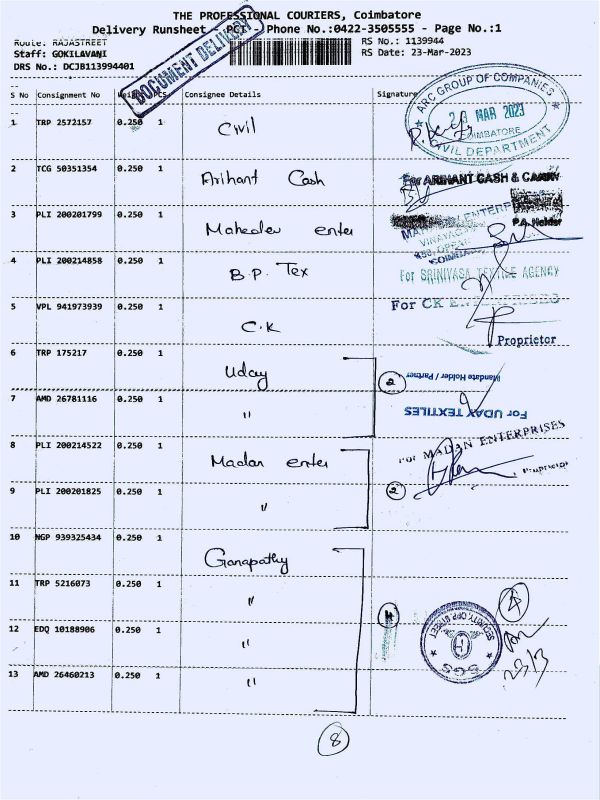 THE PROFESSIONAL COURIERS, Coimbatore
Delivery Runsheet - PCI - Phone No.:0422-3505555 - Page No.:1
Route: RAJASTREET RS No.: 1139944
Staff: GOKILAVANI RS Date: 23-Mar-2023
DRS No.: DCJB113994401
DOCUMENT DELIVERY
S No Consignment No Weight PCS Consignee Details Signature
ARC GROUP OF COMPANIES
23 MAR 2023
COIMBATORE
CIVIL DEPARTMENT
1 TRP 2572157 0.250 1 Civil
2 TCG 50351354 0.250 1 Arihant Cash
For ARIHANT CASH & CARRY
P.A. Holder
3 PLI 200201799 0.250 1 Mahadev enter
4 PLI 200214858 0.250 1 B.P. Tex
For SRINIVASA TEXTILE AGENCY
5 VPL 941973939 0.250 1 C.K
For CK ENTERPRISES
Proprietor
6 TRP 175217 0.250 1 Uday
2
Mandate Holder / Partner
7 AMD 26781116 0.250 1 "
For UDAY TEXTILES
8 PLI 200214522 0.250 1 Madan enter
For MADAN ENTERPRISES
Proprietor
9 PLI 200201825 0.250 1 "
2
10 NGP 939325434 0.250 1 Ganapathy
11 TRP 5216073 0.250 1 "
4
4
12 EDQ 10188906 0.250 1 "
SGS
23/3
13 AMD 26460213 0.250 1 "
8